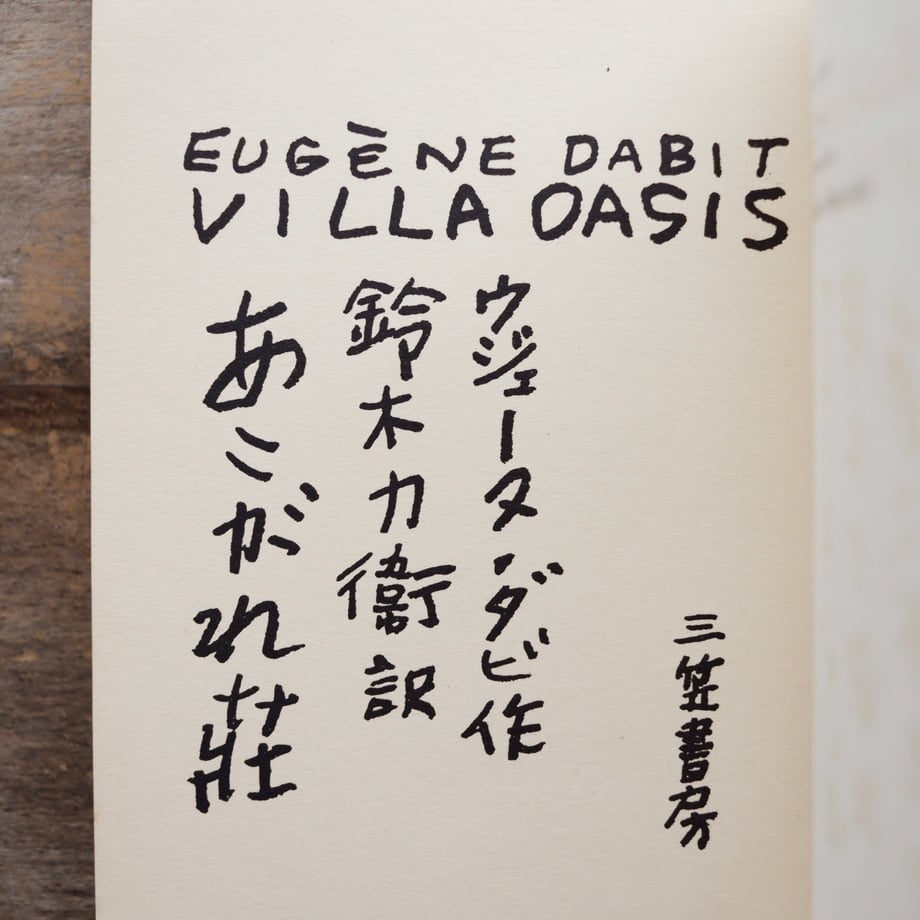 EUGÈNE DABIT
VILLA OASIS
三笠書房
ウジェーヌ・ダビ作
鈴木力衞訳
あこがれ莊